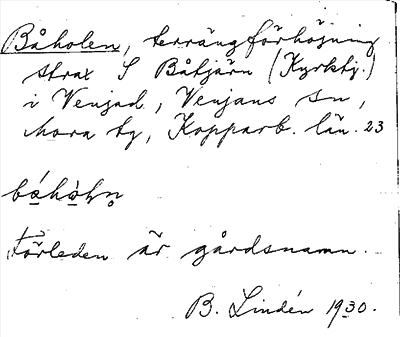 Båholen, terrängförhöjning
strax S Båtjärn (Kyrktj.)
i Venjad, Venjans sn,
Mora tg, Kopparb. län. 23
Förleden är gårdsnamn.
B. Lindén 1930.